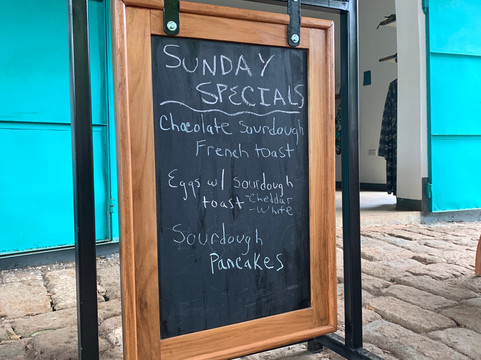 SUNDAY
SPECIALS
Chocolate Sourdough
French toast
Eggs w/ sourdough
toast -Cheddar
-White
Sourdough
Pancakes